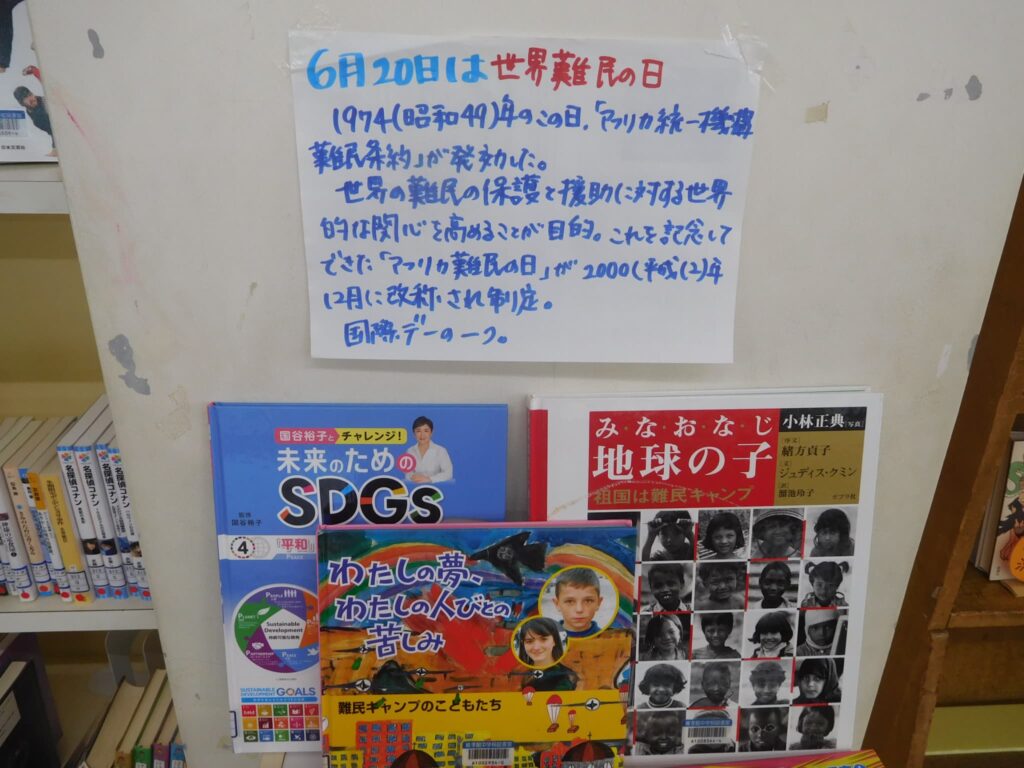 6月20日は世界難民の日
1974(昭和49)年のこの日、「アフリカ統一機構
難民条約」が発効した。
世界の難民の保護と援助に対する世界
的な関心を高めることが目的。これを記念して
できた「アフリカ難民の日」が2000(平成12)年
12月に改称され制定。
国際デーの一つ。
国谷裕子と チャレンジ!
未来のための
SDGs
監修
国谷裕子
4 『平和』
PEACE
PEOPLE
PLANET
Sustainable
Development
持続可能な開発
PARTNERSHIP
SUSTAINABLE DEVELOPMENT GOALS
わたしの夢、
わたしの人びとの
苦しみ
難民キャンプのこどもたち
み・な・お・な・じ
地球の子
祖国は難民キャンプ
小林正典[写真]
[序文]
緒方貞子
[文]
ジュディス・クミン
[訳]
ポプラ社
名探偵コナン
名探偵コナン
名探偵コナン
名探偵コナン